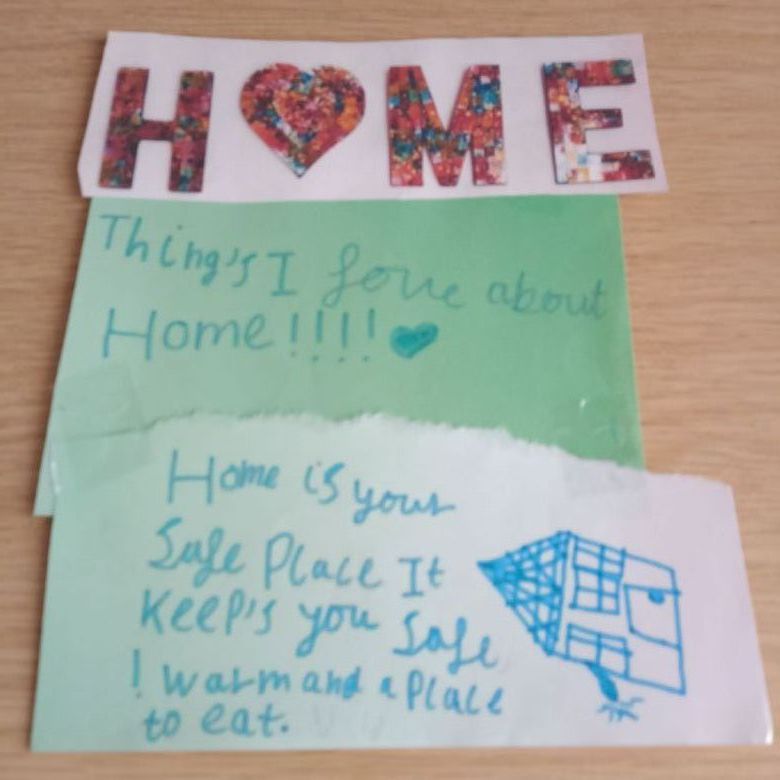 H♥ME
Thing's I love about
Home!!!! ♥
Home is your
Safe Place It
Keep's you Safe
! warm and a Place
to eat.